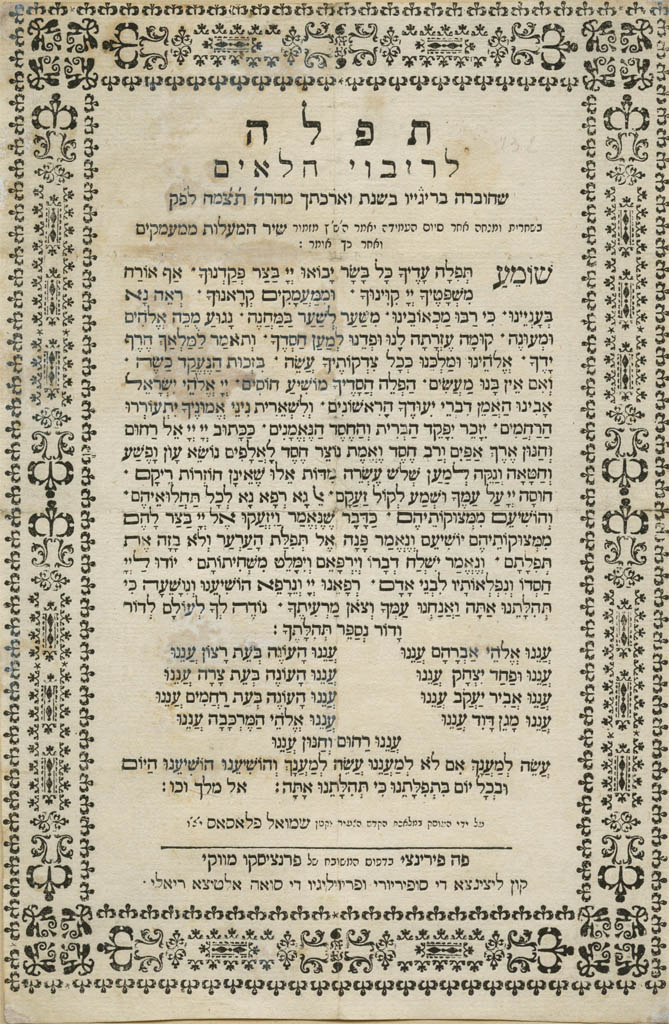 תפלה
לריבוי חלאים
שחוברה בריגייו בשנת וארכתך מהרה תצמח לפק
בשחרית ומנחה אחר סיום העמידה יאמר הש״ץ מזמור שיר המעלות ממעמקים
ואחר כך אומר :
שׁוֹמֵעַ תְּפִלָּה עָדֶיךָ כָּל בָּשָׂר יָבוֹאוּ יְיָ בַּצַּר פְּקַדְנוּךָ · אַף אוֹרַח
מִשְׁפָּטֶיךָ יְיָ קִוִּינוּךָ · וּמִמַּעֲמַקִּים קְרָאנוּךָ · רְאֵה נָא
בְּעָנְיֵינוּ · כִּי רַבּוּ מַכְאוֹבֵינוּ · מִשַּׁעַר לְשַׁעַר בַּמַּחֲנֶה · נָגוּעַ מֻכֵּה אֱלֹהִים
וּמְעוּנֶה · קוּמָה עֶזְרָתָה לָנוּ וּפְדֵנוּ לְמַעַן חַסְדֶּךָ · וְתֹאמַר לַמַּלְאָךְ הֶרֶף
יָדֶךָ · אֱלֹהֵינוּ וּמַלְכֵּנוּ בְּכָל צִדְקוֹתֶיךָ עֲשֵׂה · בִּזְכוּת הַנֶּעֱקַד כַּשֶּׂה ·
וְאִם אֵין בָּנוּ מַעֲשִׂים · הַפְלֵה חֲסָדֶיךָ מוֹשִׁיעַ חוֹסִים · יְיָ אֱלֹהֵי יִשְׂרָאֵל
אָבִינוּ הַאֲמֵן דִּבְרֵי יִעוּדֶךָ הָרִאשׁוֹנִים · וְלִשְׁאֵרִית נִינֵי אֱמוּנֶיךָ יִתְעוֹרְרוּ
הָרַחֲמִים · יִזָּכֵר יִפָּקֵד הַבְּרִית וְהַחֶסֶד הַנֶּאֱמָנִים · כַּכָּתוּב יְיָ יְיָ אֵל רַחוּם
וְחַנּוּן אֶרֶךְ אַפַּיִם וְרַב חֶסֶד וֶאֱמֶת נוֹצֵר חֶסֶד לָאֲלָפִים נוֹשֵׂא עָוֹן וָפֶשַׁע
וְחַטָּאָה וְנַקֵּה לְמַעַן שְׁלֹשׁ עֶשְׂרֵה מִדּוֹת אֵלּוּ שֶׁאֵינָן חוֹזְרוֹת רֵיקָם ·
חוּסָה יְיָ עַל עַמְּךָ וּשְׁמַע לְקוֹל זַעֲקָם · אֵל נָא רְפָא נָא לְכָל תַּחֲלוּאֵיהֶם ·
וְהוֹשִׁיעֵם מִמְּצוּקוֹתֵיהֶם · כַּדָּבָר שֶׁנֶּאֱמַר וַיִּזְעֲקוּ אֶל יְיָ בַּצַּר לָהֶם
מִמְּצוּקוֹתֵיהֶם יוֹשִׁיעֵם וְנֶאֱמַר פָּנָה אֶל תְּפִלַּת הָעַרְעָר וְלֹא בָזָה אֶת
תְּפִלָּתָם · וְנֶאֱמַר יִשְׁלַח דְּבָרוֹ וְיִרְפָּאֵם וִימַלֵּט מִשְּׁחִיתוֹתָם · יוֹדוּ לַייָ
חַסְדּוֹ וְנִפְלְאוֹתָיו לִבְנֵי אָדָם · רְפָאֵנוּ יְיָ וְנֵרָפֵא הוֹשִׁיעֵנוּ וְנִוָּשֵׁעָה כִּי
תְהִלָּתֵנוּ אַתָּה וַאֲנַחְנוּ עַמְּךָ וְצֹאן מַרְעִיתֶךָ · נוֹדֶה לְּךָ לְעוֹלָם לְדוֹר
וָדוֹר נְסַפֵּר תְּהִלָּתֶךָ :
עֲנֵנוּ אֱלֹהֵי אַבְרָהָם עֲנֵנוּ עֲנֵנוּ הָעוֹנֶה בְּעֵת רָצוֹן עֲנֵנוּ
עֲנֵנוּ וּפַחַד יִצְחָק עֲנֵנוּ עֲנֵנוּ הָעוֹנֶה בְּעֵת צָרָה עֲנֵנוּ
עֲנֵנוּ אֲבִיר יַעֲקֹב עֲנֵנוּ עֲנֵנוּ הָעוֹנֶה בְּעֵת רַחֲמִים עֲנֵנוּ
עֲנֵנוּ מָגֵן דָּוִד עֲנֵנוּ עֲנֵנוּ אֱלֹהֵי הַמֶּרְכָּבָה עֲנֵנוּ
עֲנֵנוּ רַחוּם וְחַנּוּן עֲנֵנוּ
עֲשֵׂה לְמַעֲנָךְ אִם לֹא לְמַעֲנֵנוּ עֲשֵׂה לְמַעֲנָךְ וְהוֹשִׁיעֵנוּ הוֹשִׁיעֵנוּ הַיּוֹם
וּבְכָל יוֹם בִּתְפִלָּתֵנוּ כִּי תְהִלָּתֵנוּ אָתָּה : אל מלך וכו׳ :
על ידי העוסק במלאכת הקדש הצעיר יקטן שמואל פלאסאס
פה פירינצי בדפוס המשובח של פרנציסקו מווקי
קון ליצינצא די סופיריורי ופריויליגיו די סואה אלטיצא ריאלי ·